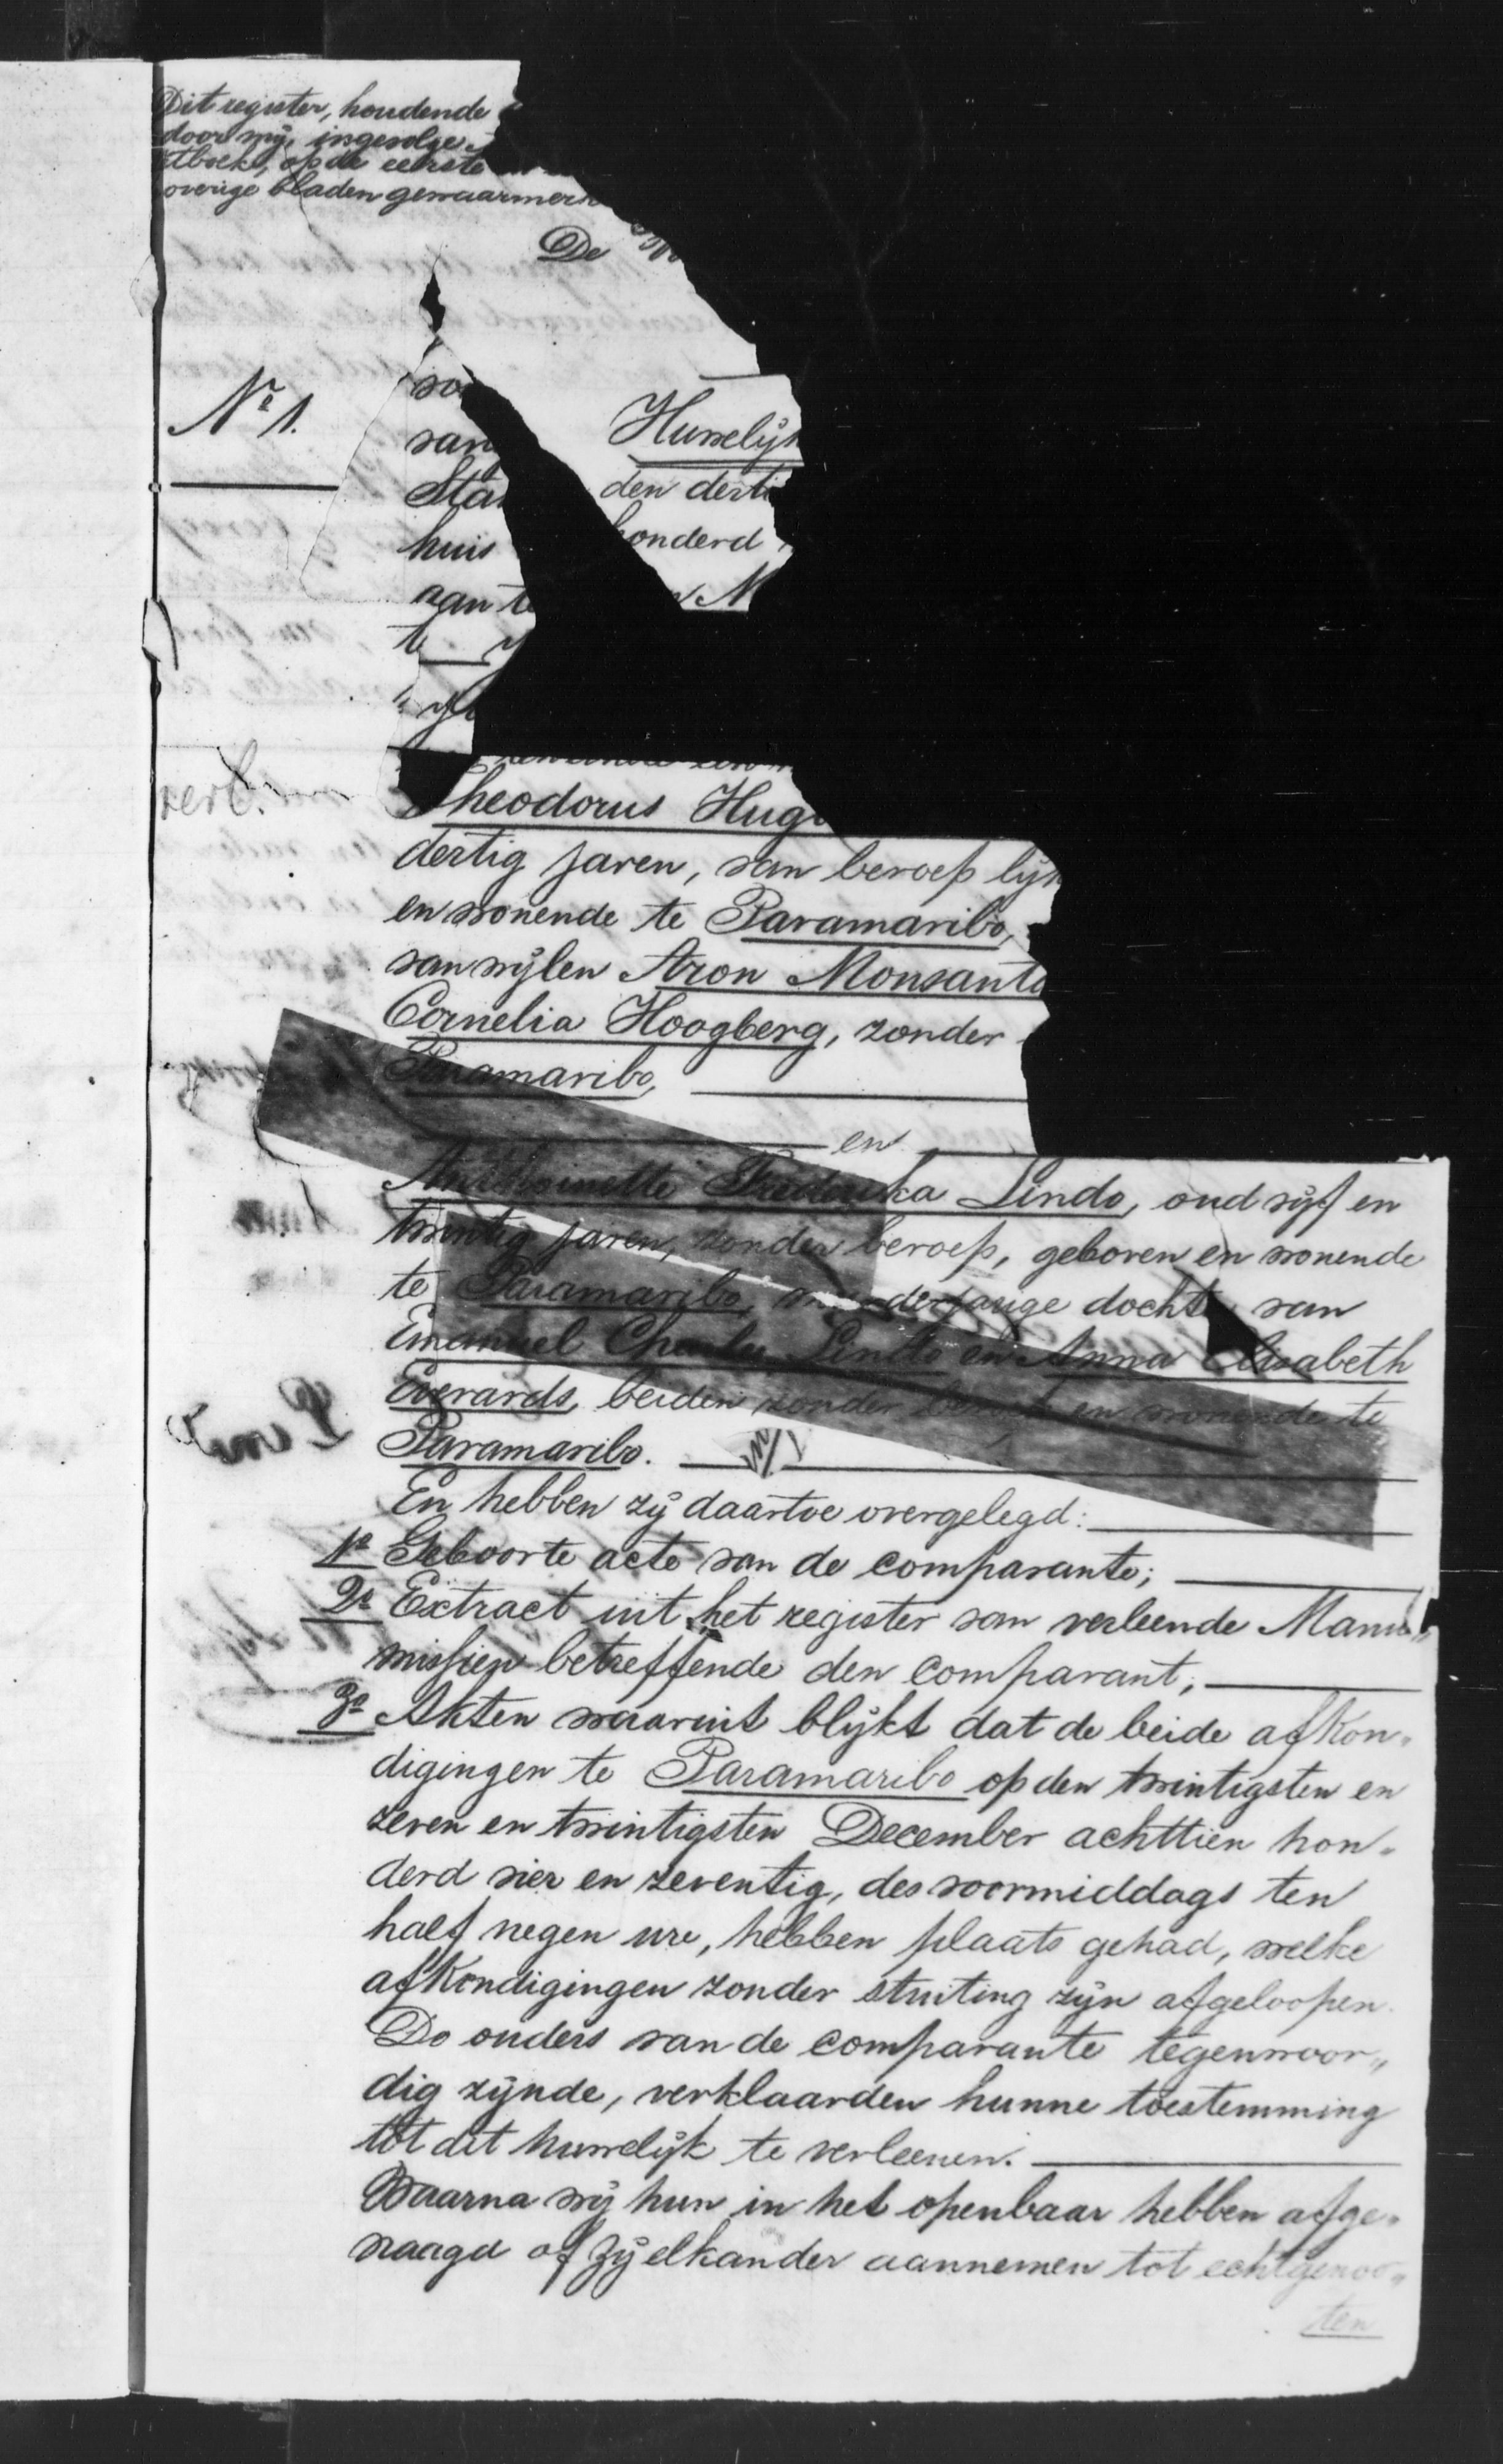 Dit register, houdende
door mij, ingevolge
etboek, op de eerste
overige bladen gewaarmerk
De
Nº 1.
van
Huwelijk
Sta
den derti
huis
honderd
aan te
Theodorus Hugo
dertig jaren, van beroep lijk
en wonende te Paramaribo,
van wijlen Aron Monsanto
Cornelia Hoogberg, zonder
Paramaribo,
en
Anthoinette Frederika Lindo, oud vijf en
twintig jaren, zonder beroep, geboren en wonende
te Paramaribo, meerderjarige dochter van
Emanuel Charles Lindo en Anna Elisabeth
Everards, beiden zonder beroep en wonende te
Paramaribo.
En hebben zij daartoe overgelegd:
1º Geboorte acte van de comparante;
2º Extract uit het register van verleende Manu„
missien betreffende den comparant;
3º Akten waaruit blijkt dat de beide afkon„
digingen te Paramaribo op den twintigsten en
zeven en twintigsten December achttien hon„
derd vier en zeventig, des voormiddags ten
half negen ure, hebben plaats gehad, welke
afkondigingen zonder stuiting zijn afgeloopen.
De ouders van de comparante tegenwoor„
dig zijnde, verklaarden hunne toestemming
tot dit huwelijk te verleenen.
Waarna wij hun in het openbaar hebben afge„
vraagd of zij elkander aannemen tot echtgenoo„
ten